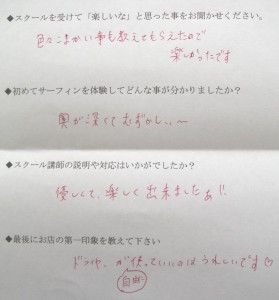 ◆スクールを受けて「楽しいな」と思った事をお聞かせください。
色々こまかい事も教えてもらえたので
楽しかったです
◆初めてサーフィンを体験してどんな事が分かりましたか？
奥が深くてむずかしい〜
◆スクール講師の説明や対応はいかがでしたか？
優しくて、楽しく出来ましたぁ!!
◆最後にお店の第一印象を教えて下さい
ドライヤーが使っていいのはうれしいです♡
自由に